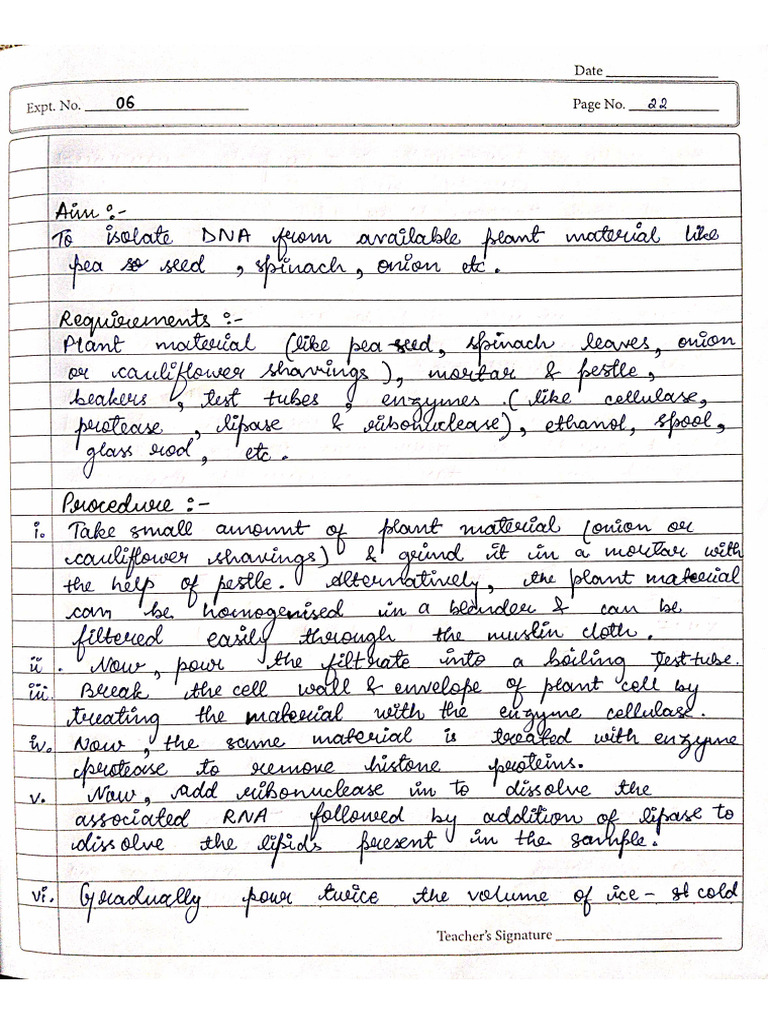 Date
Expt. No. 06
Page No. 22
Aim :-
To isolate DNA from available plant material like
pea so seed , spinach , onion etc .
Requirements :-
Plant material (like pea seed, spinach leaves, onion
or cauliflower shavings), mortar & pestle,
beakers , test tubes , enzymes (like cellulase,
protease , lipase & ribonuclease), ethanol, spool,
glass rod, etc .
Procedure :-
i. Take small amount of plant material (onion or
cauliflower shavings) & grind it in a mortar with
the help of pestle. Alternatively, the plant material
can be homogenised in a blender & can be
filtered easily through the muslin cloth .
ii . Now, pour the filtrate into a boiling test tube.
iii. Break the cell wall & envelope of plant cell by
treating the material with the enzyme cellulase.
iv. Now , the same material is treated with enzyme
protease to remove histone proteins.
v. Now, add ribonuclease in to dissolve the
associated RNA followed by addition of lipase to
dissolve the lipids present in the sample.
vi. Gradually pour twice the volume of ice - st cold
Teacher's Signature